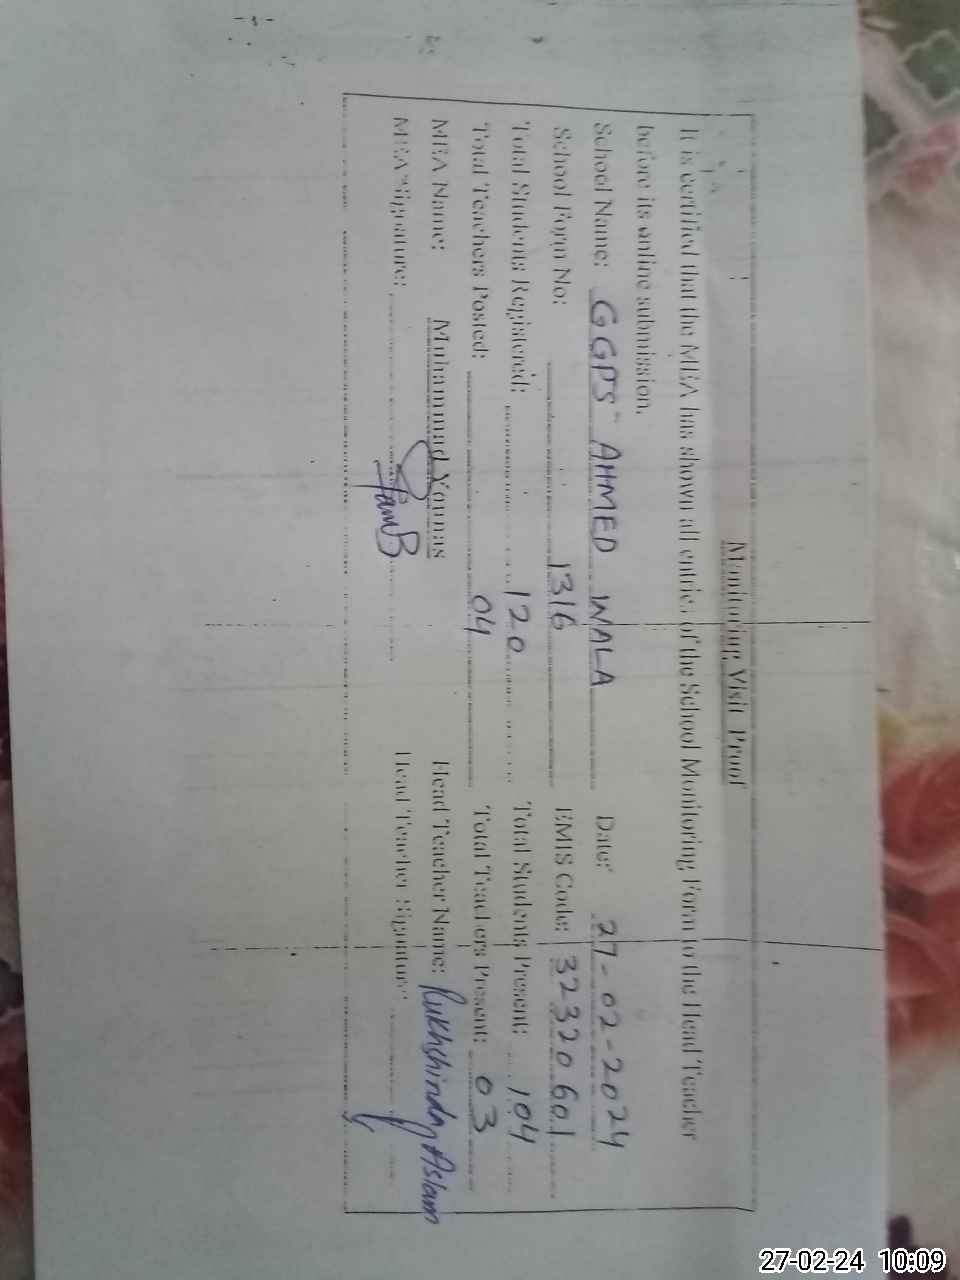 Monitoring Visit Proof
It is certified that the MEA has shown all entries of the School Monitoring Form to the Head Teacher
before its online submission.
School Name: GGPS AHMED WALA Date: 27-02-2024
School Form No: 1316 EMIS Code: 32320601
Total Students Registered: 120 Total Students Present: 104
Total Teachers Posted: 04 Total Teachers Present: 03
MEA Name: Muhammad Younas Head Teacher Name: Rukhshinda Aslam
MEA Signature: Head Teacher Signature:
27-02-24 10:09